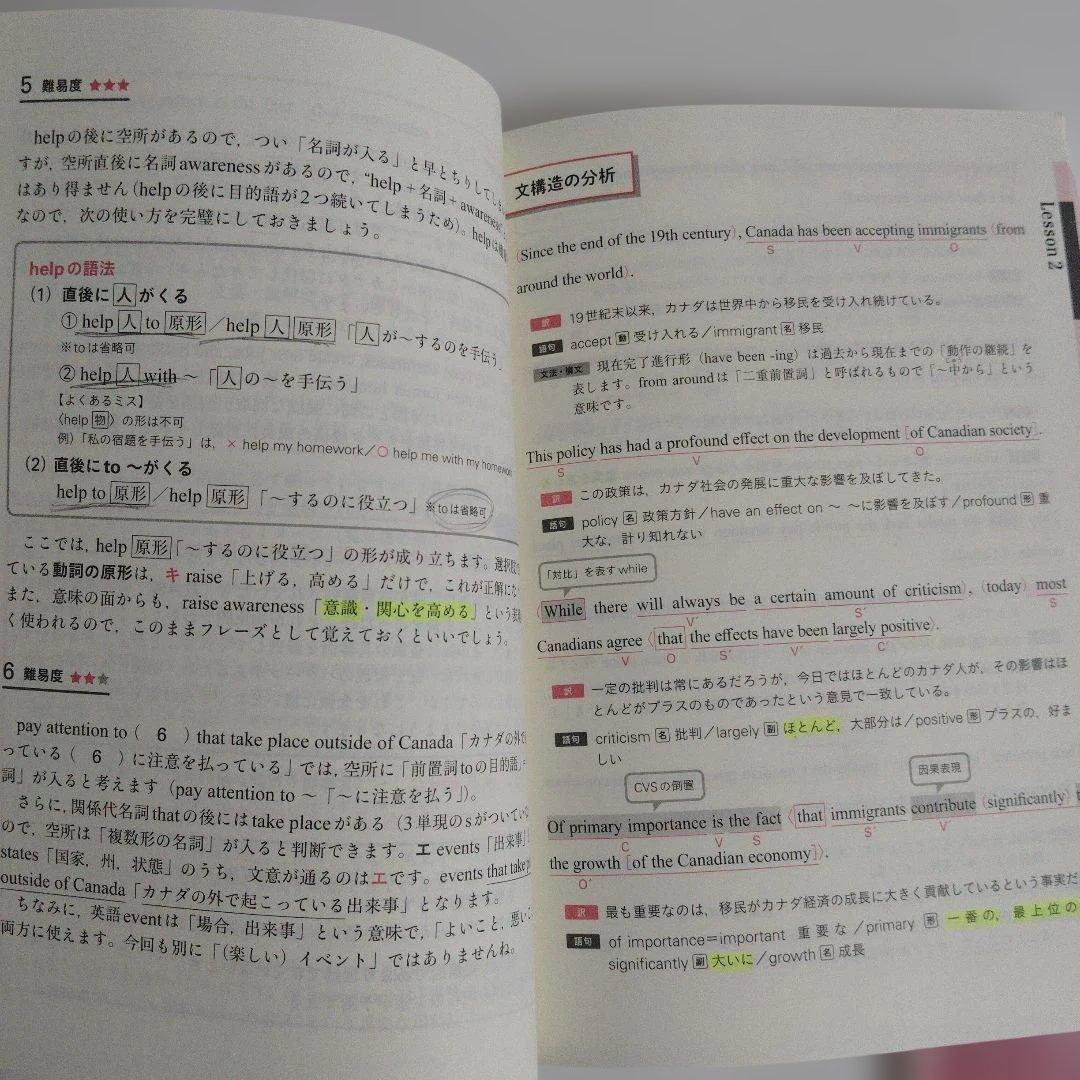 5 難易度 ★★★
helpの後に空所があるので，つい「名詞が入る」と早とちりしてしま
すが，空所直後に名詞awarenessがあるので，“help＋名詞＋awareness”
はあり得ません（helpの後に目的語が2つ続いてしまうため）。helpは
なので，次の使い方を完璧にしておきましょう。
helpの語法
(1) 直後に人がくる
① help 人 to 原形／help 人 原形「人が～するのを手伝う」
※toは省略可
② help 人 with ～「人の～を手伝う」
【よくあるミス】
〈help 物〉の形は不可
例）「私の宿題を手伝う」は，× help my homework／○ help me with my homework
(2) 直後にto ～がくる
help to 原形／help 原形「～するのに役立つ」※toは省略可
ここでは，help 原形「～するのに役立つ」の形が成り立ちます。選択肢
ている動詞の原形は，キ raise「上げる，高める」だけで，これが正解にな
また，意味の面からも，raise awareness「意識・関心を高める」という表
く使われるので，このままフレーズとして覚えておくといいでしょう。
6 難易度 ★★★
pay attention to ( 6 ) that take place outside of Canada「カナダの外で
っている ( 6 ) に注意を払っている」では，空所に「前置詞toの目的語」=
詞」が入ると考えます（pay attention to ～「～に注意を払う」）。
さらに，関係代名詞thatの後にはtake placeがある（3単現のsがついてい
ので，空所は「複数形の名詞」が入ると判断できます。エ events「出来事」
states「国家，州，状態」のうち，文意が通るのはエです。events that take
outside of Canada「カナダの外で起こっている出来事」となります。
ちなみに，英語eventは「場合，出来事」という意味で，「よいこと，悪い
両方に使えます。今回も別に「（楽しい）イベント」ではありませんね。
文構造の分析
Lesson 2
(Since the end of the 19th century), Canada has been accepting immigrants (from
S V O
around the world).
訳 19世紀末以来，カナダは世界中から移民を受け入れ続けている。
語句 accept 動 受け入れる／immigrant 名 移民
文法・構文 現在完了進行形（have been -ing）は過去から現在までの「動作の継続」を
表します。from aroundは「二重前置詞」と呼ばれるもので「～中から」という
意味です。
This policy has had a profound effect on the development [of Canadian society].
S V O
訳 この政策は，カナダ社会の発展に重大な影響を及ぼしてきた。
語句 policy 名 政策方針／have an effect on ～ ～に影響を及ぼす／profound 形 重
大な，計り知れない
「対比」を表すwhile
(While there will always be a certain amount of criticism), (today) most
V' S' S
Canadians agree 〈that the effects have been largely positive〉.
V O S' V' C'
訳 一定の批判は常にあるだろうが，今日ではほとんどのカナダ人が，その影響はほ
とんどがプラスのものであったという意見で一致している。
語句 criticism 名 批判／largely 副 ほとんど，大部分は／positive 形 プラスの，好ま
しい
CVSの倒置
因果表現
Of primary importance is the fact 〈that immigrants contribute (significantly)
C V S S' V'
the growth [of the Canadian economy]〉.
O'
訳 最も重要なのは，移民がカナダ経済の成長に大きく貢献しているという事実だ
語句 of importance＝important 重要な／primary 形 一番の，最上位の
significantly 副 大いに／growth 名 成長